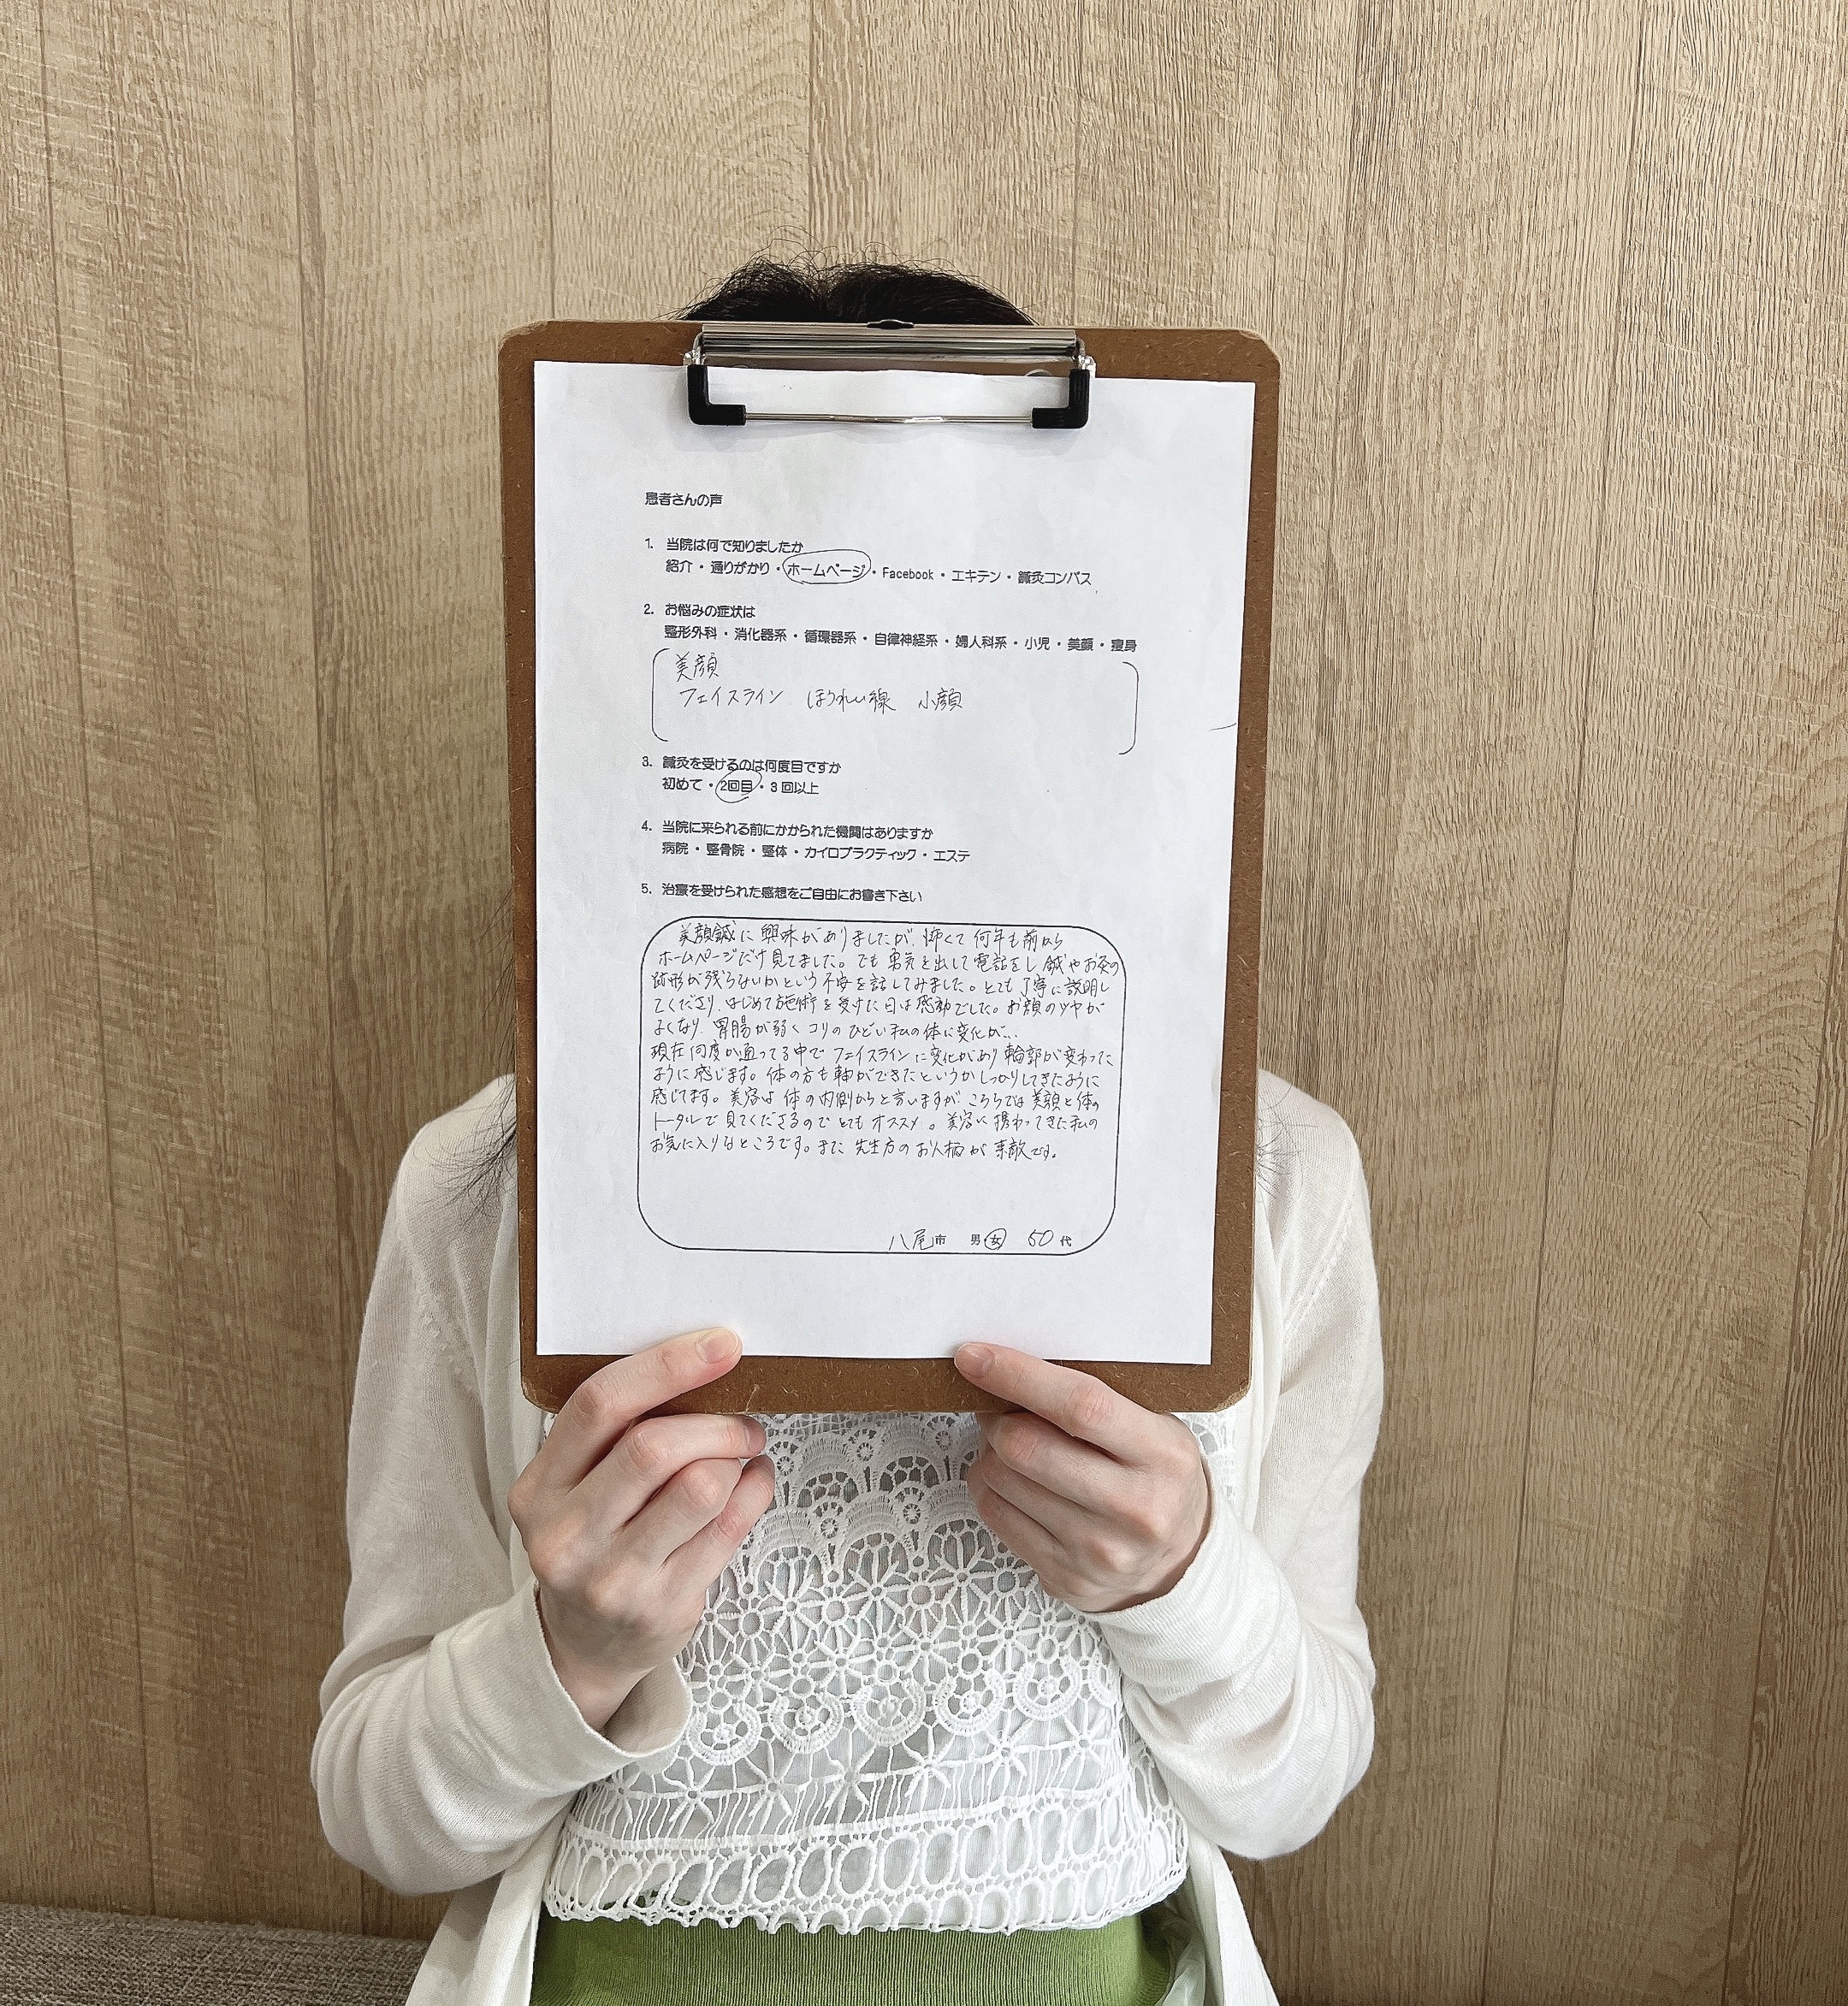 患者さんの声
1. 当院は何で知りましたか
紹介・通りがかり・ホームページ・Facebook・エキテン・鍼灸コンパス
2. お悩みの症状は
整形外科・消化器系・循環器系・自律神経系・婦人科系・小児・美顔・痩身
美顔
フェイスライン ほうれい線 小顔
3. 鍼灸を受けるのは何度目ですか
初めて・2回目・3回以上
4. 当院に来られる前にかかられた機関はありますか
病院・整骨院・整体・カイロプラクティック・エステ
5. 治療を受けられた感想をご自由にお書き下さい
美顔鍼に興味がありましたが、怖くて何年も前から
ホームページだけ見てました。でも勇気を出して電話をし鍼やお灸の
跡形が残らないかという不安を話してみました。とても丁寧に説明し
てくださり、はじめて施術を受けた日は感動でした。お顔のツヤが
よくなり、胃腸が弱くコリのひどい私の体に変化が…
現在何度か通ってる中でフェイスラインに変化があり輪郭が変わった
ように感じます。体の方も軸ができたというかしっかりしてきたように
感じてます。美容は体の内側からと言いますが、こちらでは美顔と体の
トータルで見てくださるのでとてもオススメ。美容に携わってきた私の
お気に入りなところです。また先生方のお人柄が素敵です。
八尾市 男・女 50代